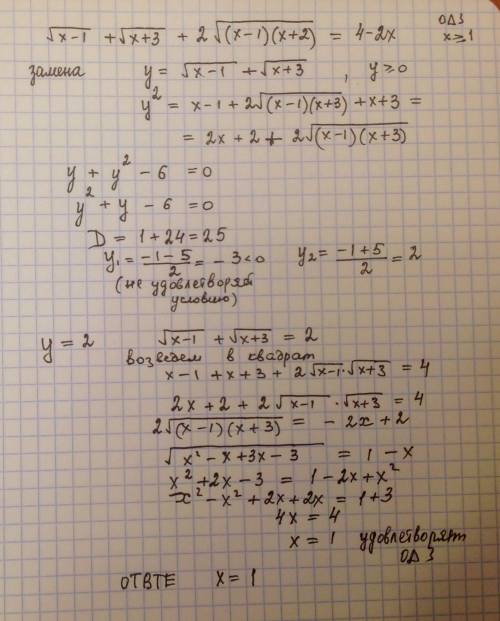 √(x-1) + √(x+3) + 2√((x-1)(x+2)) = 4-2x
ОДЗ
x≥1
замена y = √(x-1) + √(x+3) , y≥0
y² = x-1 + 2√((x-1)(x+3)) + x+3 =
= 2x + 2 + 2√((x-1)(x+3))
y + y² - 6 = 0
y² + y - 6 = 0
D = 1 + 24 = 25
y₁ = (-1-5)/2 = -3 < 0 y₂ = (-1+5)/2 = 2
(не удовлетворяет
условию)
y = 2 √(x-1) + √(x+3) = 2
возведем в квадрат
x-1 + x+3 + 2√(x-1)·√(x+3) = 4
2x + 2 + 2√(x-1)·√(x+3) = 4
2√((x-1)(x+3)) = - 2x + 2
√(x²-x+3x-3) = 1-x
x² + 2x - 3 = 1 - 2x + x²
x² - x² + 2x + 2x = 1+3
4x = 4
x = 1 удовлетворят
ОДЗ
ОТВТЕ x = 1